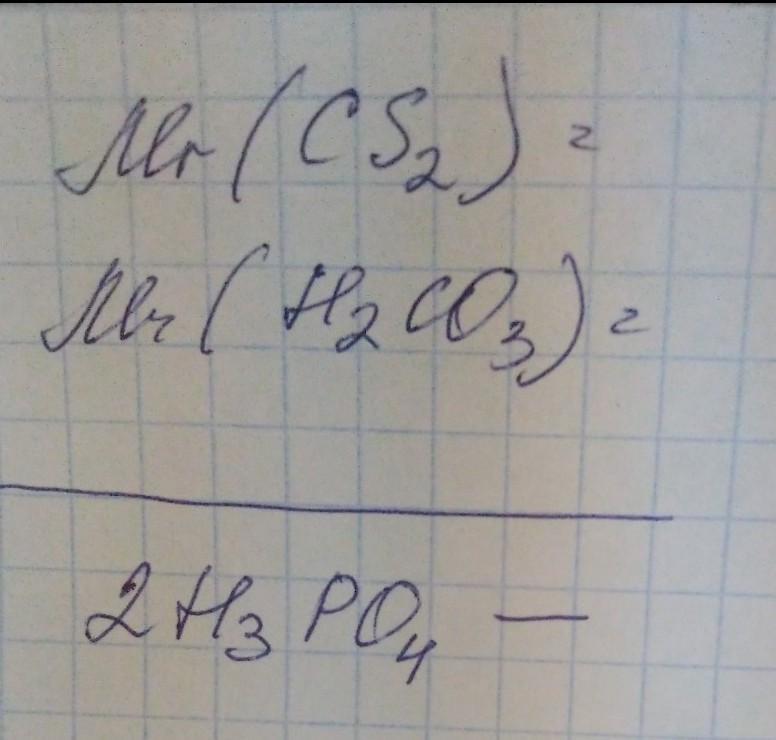 Mr(CS₂) =
Mr(H₂CO₃) =
2H₃PO₄ —